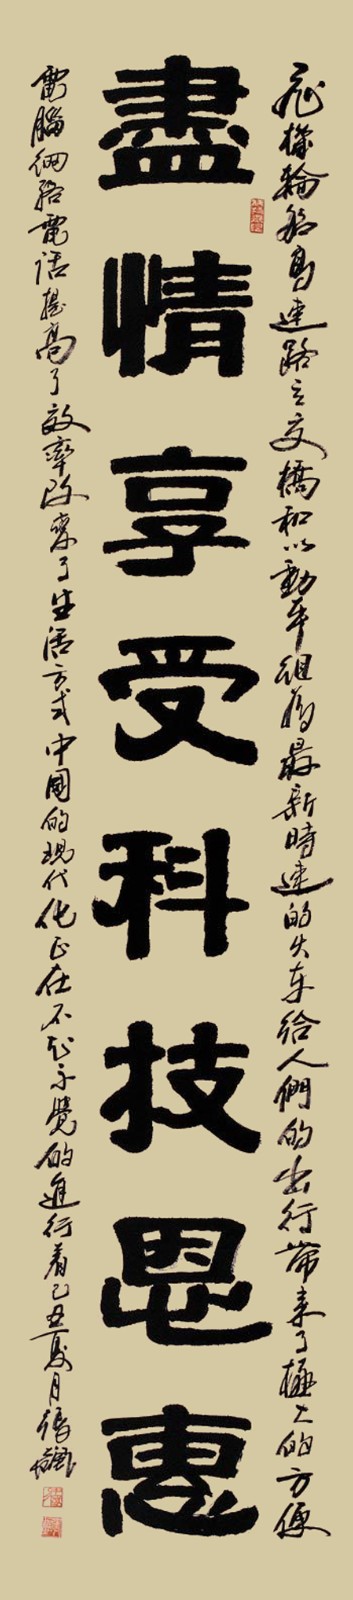 飛機輪船高速路立交橋和以動車組為最新時速的火車給人們的出行帶来了極大的方便
盡情享受科技恩惠
電腦網絡電話提高了效率改變了生活方式中國的現代化正在不知不覺的進行着己丑夏月張飆